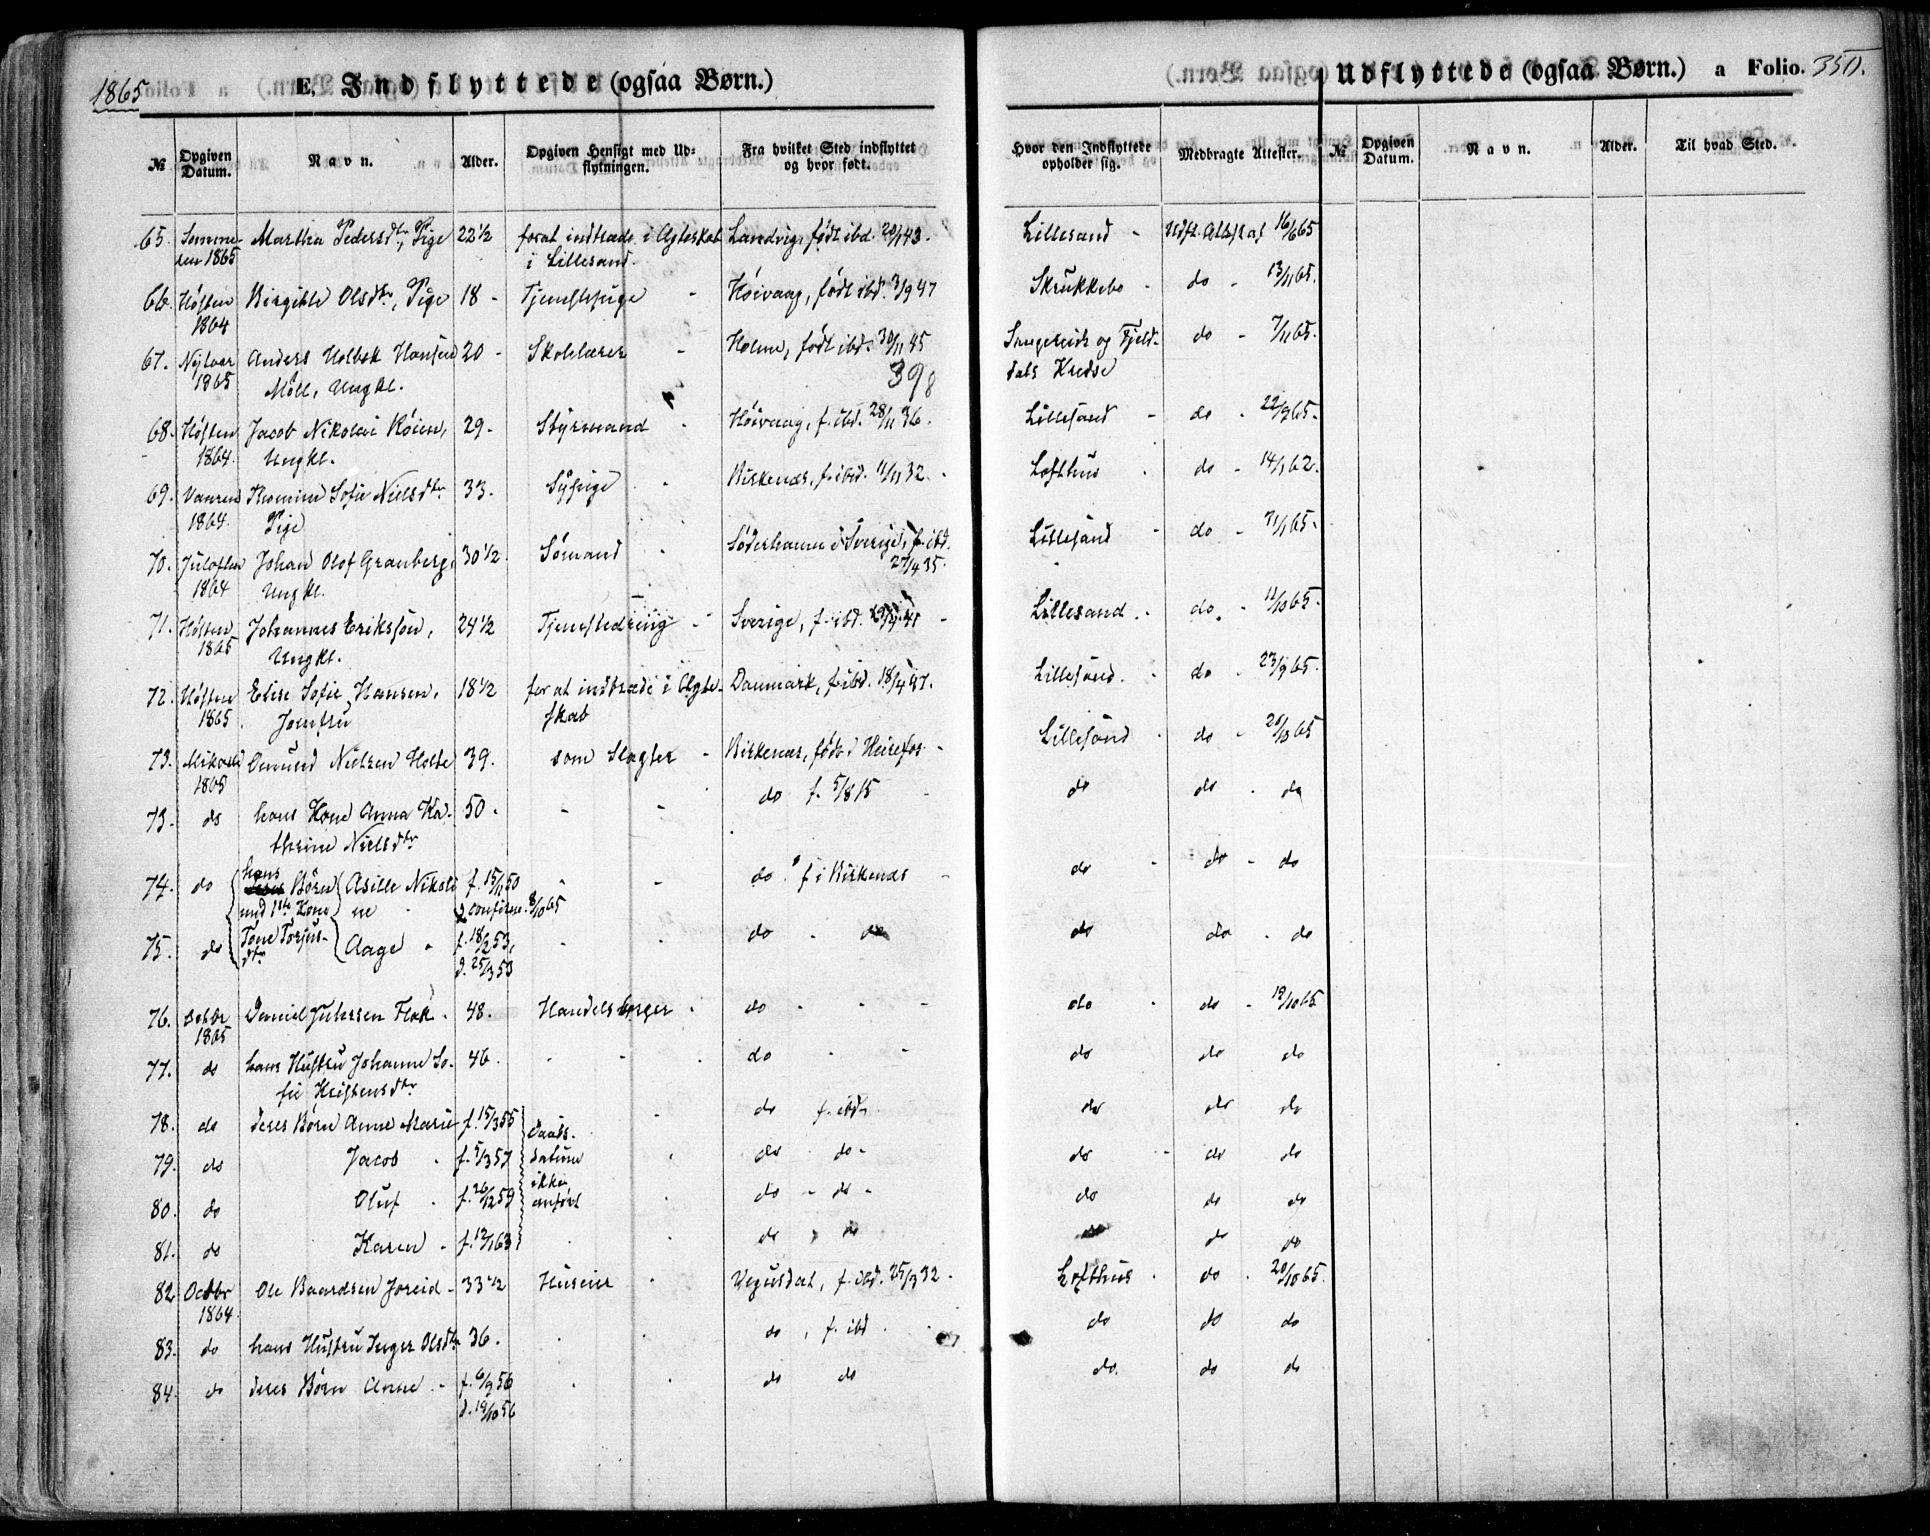 1865
E. Indflyttede (ogsaa Børn.)
Udflyttede (ogsaa Børn.) a Folio. 350.
№ Opgiven Datum. Navn. Alder. Opgiven Hensigt med Udflytningen. Fra hvilket Sted indflyttet og hvor født. Hvor den Indflyttede opholder sig. Medbragte Attester. № Opgiven Datum. Navn. Alder. Til hvad Sted.
65. Sommeren 1865 Martha Pedersdtr, Pige 22½ for at indtræde i Ægteskab i Lillesand. Landvig, født ibd. Lillesand - Udfl. Attest af 16/6 65
66. Høsten 1864 Birgitte Olsdtr, Pige 18 - Tjenestepige - Høivaag, født ibd. 3/9 47 Skrukkebo - do - 13/11 65.
67. Nytaar 1865 Anders Holbek Hansen 20 - Skolelærer - Holme, født ibd. 30/11 45 og Fjeld- do - 7/11 65.
Møll, Ungkl. 398 dals Kredse
68. Høsten 1864. Jacob Nikolai Røien, 29. Styrmand - Høivaag, f. ibd. 28/11 36. Lillesand - do - 22/9 65.
Ungkl.
69. Vaaren 1864. Sofie Nielsdtr 33. Sypige - Birkenæs, f. ibd. 11/11 32. - Lofthus - do - 14/1 62.
Pige
70. Juleaften 1864 Johan Olof Granberg, 30½ Sømand - Söderhamn i Sverige, f. ibd. 27/4 35. Lillesand - do -
Ungkl.
71. Høsten 1865 Johannes Eriksson, 24½ Tjenestedreng - Sverige, f. ibd. Lillesand. - do. - 12/10 65.
Ungkl.
72. Høsten 1865. Elise Sofie Hansen, 18½ for at indtræde i Ægteskab Danmark, f. ibd. 18/4 47. Lillesand. - do - 23/9 65.
Jomfru
73. Mikaeli 1865 Omund Nielsen Holte 39. som Slagter - Birkenæs, født i Heirefos - Lillesand - do - 20/10 65
73. do hans Kone Anna Kathrine Nielsdtr 50. - - do f. 5/8 15 - do do - do
74. do hans Børn med 1ste Kone Tone Torjusdtr Asille Nikoline f. 15/11 50 confirm. 8/10 65 - - do f. i Birkenæs - do - do - do
75. do Aage - f. 18/2 53, d. 25/3 53 - - do - do do do - do
76. Octbr 1865 Daniel Juhlsen Flak - 48. Handelsborger - do - - - do - do - 19/10 65
77. do hans Hustru Johanne Sofie Kristensdtr 46. - - - do - - do do do
78. do deres Børn Anne Marie f. 15/3 55 Daabsdatum ikke anført - do f. ibd. do do do
79. do Jacob - f. 5/3 57 - do - do - do - do do
80. do Oluf - f. 26/12 59 - do - do - do do do
81. do Karen - f. 12/1 63 - - do , do do do do
82. Octbr 1864. Ole Baardsen Joreid - 33½ Huseier - Vegusdal, f. ibd. 25/3 32. Lofthus - do - 20/10 65.
83. do hans Hustru Inger Olsdtr 36. - - do , f. ibd - do do do
84. do deres Børn Anne - f. 6/9 56 d. 19/10 56 - - do do do. do do